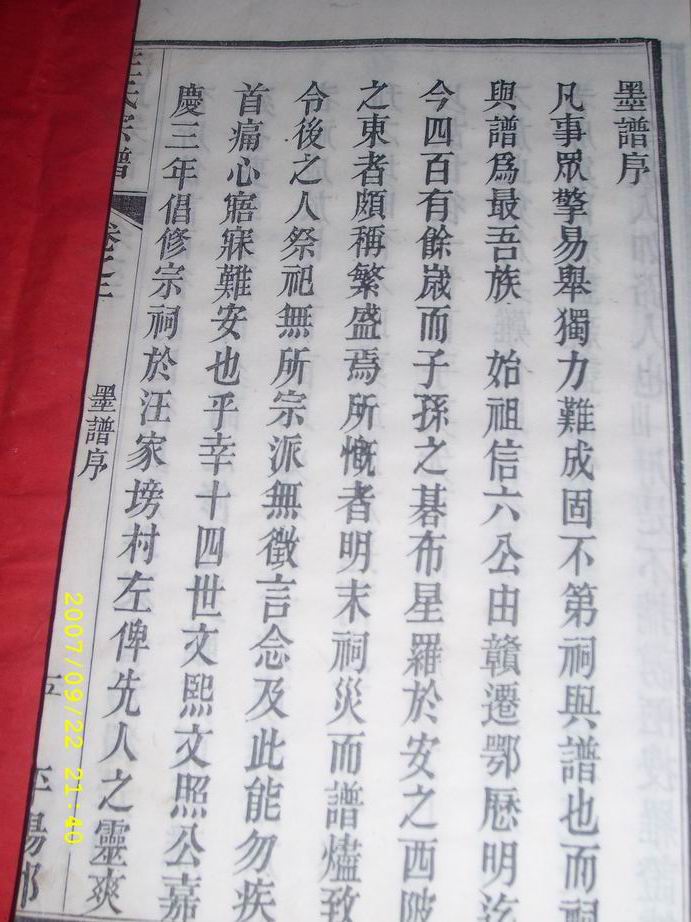 墨譜序
凡事眾擎易舉獨力難成固不第祠與譜也而祠
與譜爲最吾族 始祖信六公由贛遷鄂歷明迄
今四百有餘嵗而子孫之碁布星羅於安之西陂
之東者頗稱繁盛焉所慨者明末祠災而譜燼致
令後之人祭祀無所宗派無徵言念及此能勿疾
首痛心寤寐難安也乎幸十四世文熙文照公嘉
慶三年倡修宗祠於汪家塝村左俾先人之靈爽
汪氏宗譜
卷之三
墨譜序
五
平陽郡
2007/09/22 21:40